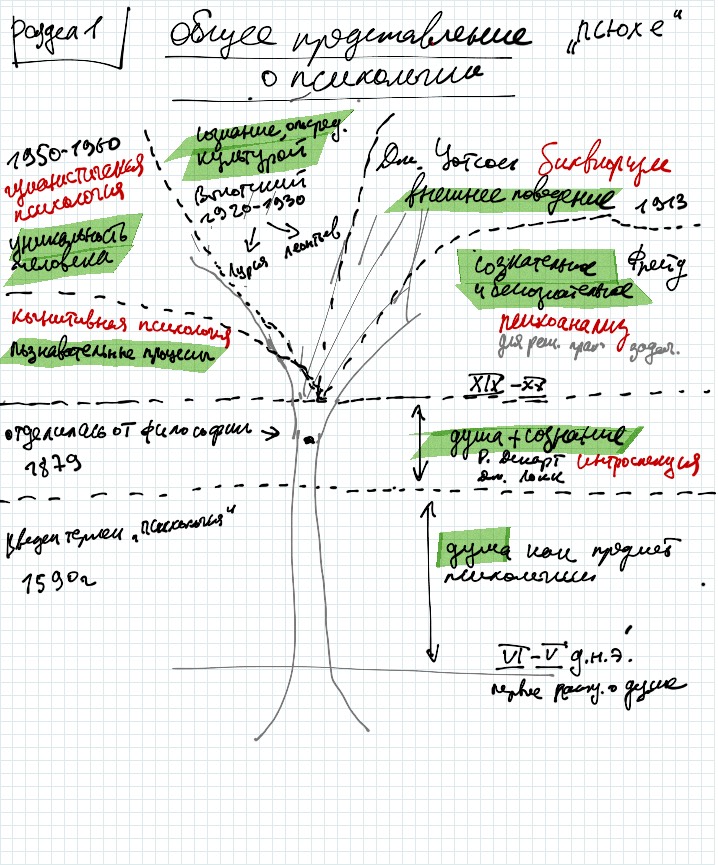 Раздел 1
Общее представление
о психологии
„псюхе“
1950-1960
гуманистическая
психология
уникальность
человека
сознание, опосред.
культурой
Выготский
1920-1930
Лурия
Леонтьев
Дж. Уотсон бихвиоризм
внешнее поведение 1913
сознательное
и бессознательное
Фрейд
психоанализ
для реш. практ. задач.
когнитивная психология
познавательные процессы
XIX - XX
отделилась от философии →
1879
душа + сознание
Р. Декарт
Дж. Локк
интроспекция
введен термин „психология“
1590г
душа как предмет
психологии
VI - V д.н.э.
первые рассу. о душе